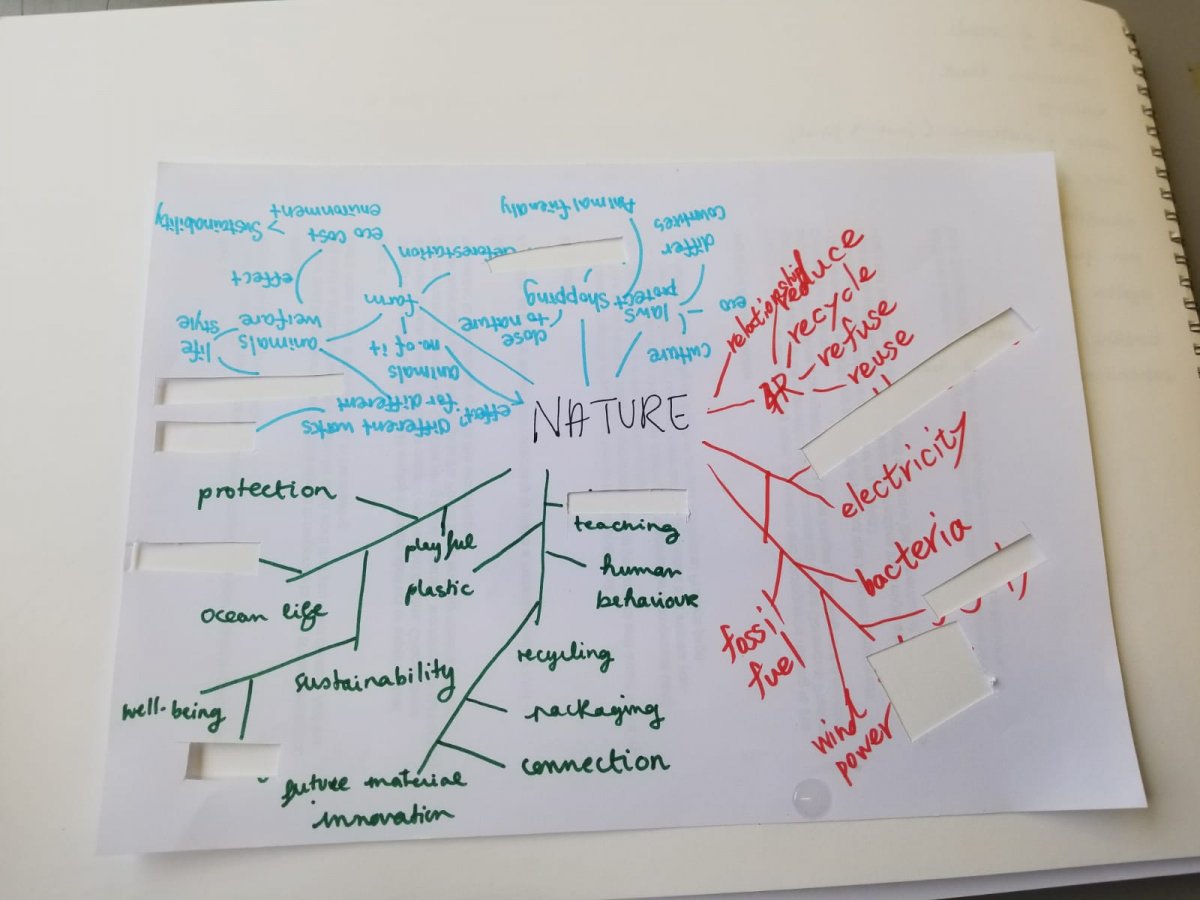 NATURE
Sustainability
environment
eco cost
effect
deforestation
farm
animals
welfare
life
style
no. of it
animals
effect?
for different
different works
Animal friendly
shopping
close
to nature
protect
laws
differ
countries
eco
culture
relationship
4R
reduce
recycle
refuse
reuse
electricity
bacteria
fossil
fuel
wind
power
protection
playful
ocean life
sustainability
well-being
teaching
plastic
human
behaviour
recycling
packaging
connection
future material
innovation